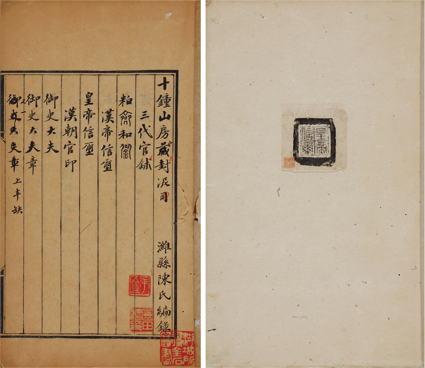 十鐘山房藏封泥目 濰縣陳氏編錄
三代官鉨
漢帝信璽
皇帝信璽
漢朝官印
御史大夫
御史大夫章
御史大夫章 上半缺
皇帝信璽